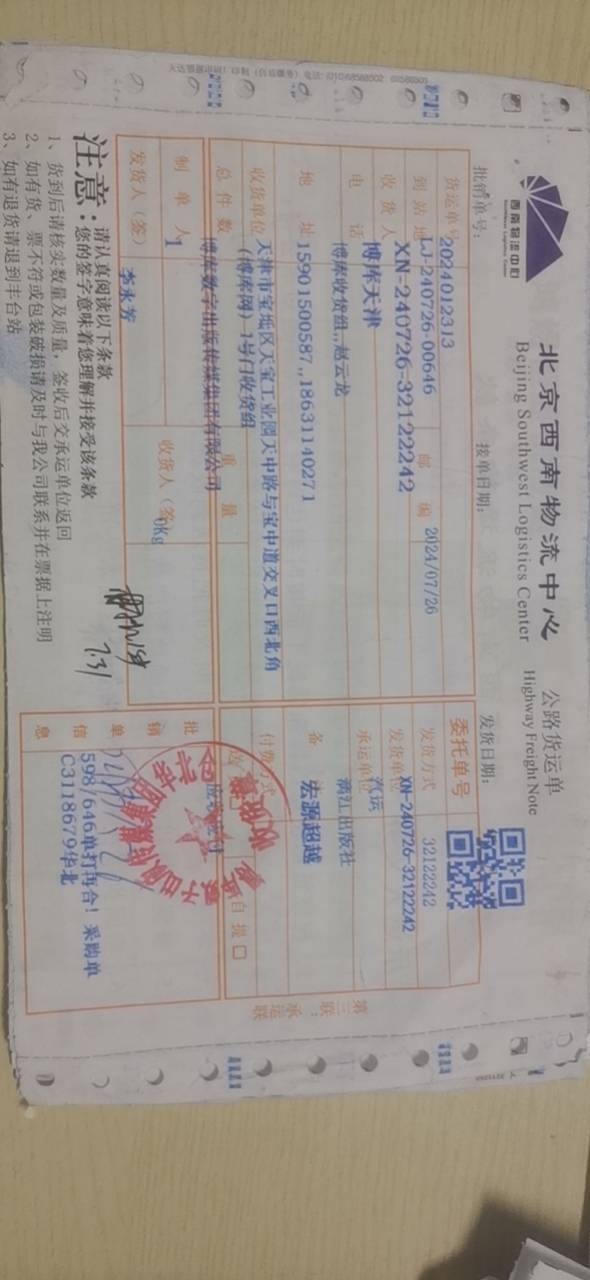 西南物流中心
Southwest Logistics Center
北京西南物流中心 公路货运单
Beijing Southwest Logistics Center Highway Freight Note
批销单号: 接单日期: 发货日期:
2024012313
货运单号 委托单号
到站地 LJ-240726-00646 邮编 2024/07/26 发货方式 32122242
收货人 XN-240726-32122242 发货单位 XN-240726-32122242
电话 博库天津 承运单位 汽运
博库收货组,,赵云龙 漓江出版社
地址 15901500587,,18631140271 备 宏源超越
收货单位 天津市宝坻区天宝工业园天中路与宝中道交叉口西北角 付费方式
(博库网) 1号门收货组
总件数 博库数字出版传媒集团有限公司 重量 自提□
制单人 1 0kg
发货人(签) 李永芳 收货人(签) 7.31
批销单信息
5987646单打再合! 采购单
C3118679华北
收货专
第三联:承运联
注意: 请认真阅读以下条款
您的签字意味着您理解并接受该条款
1、货到后请核实数量及质量,签收后交承运单位返回
2、如有货、票不符或包装破损请及时与我公司联系并在票据上注明
3、如有退货请退到丰台站